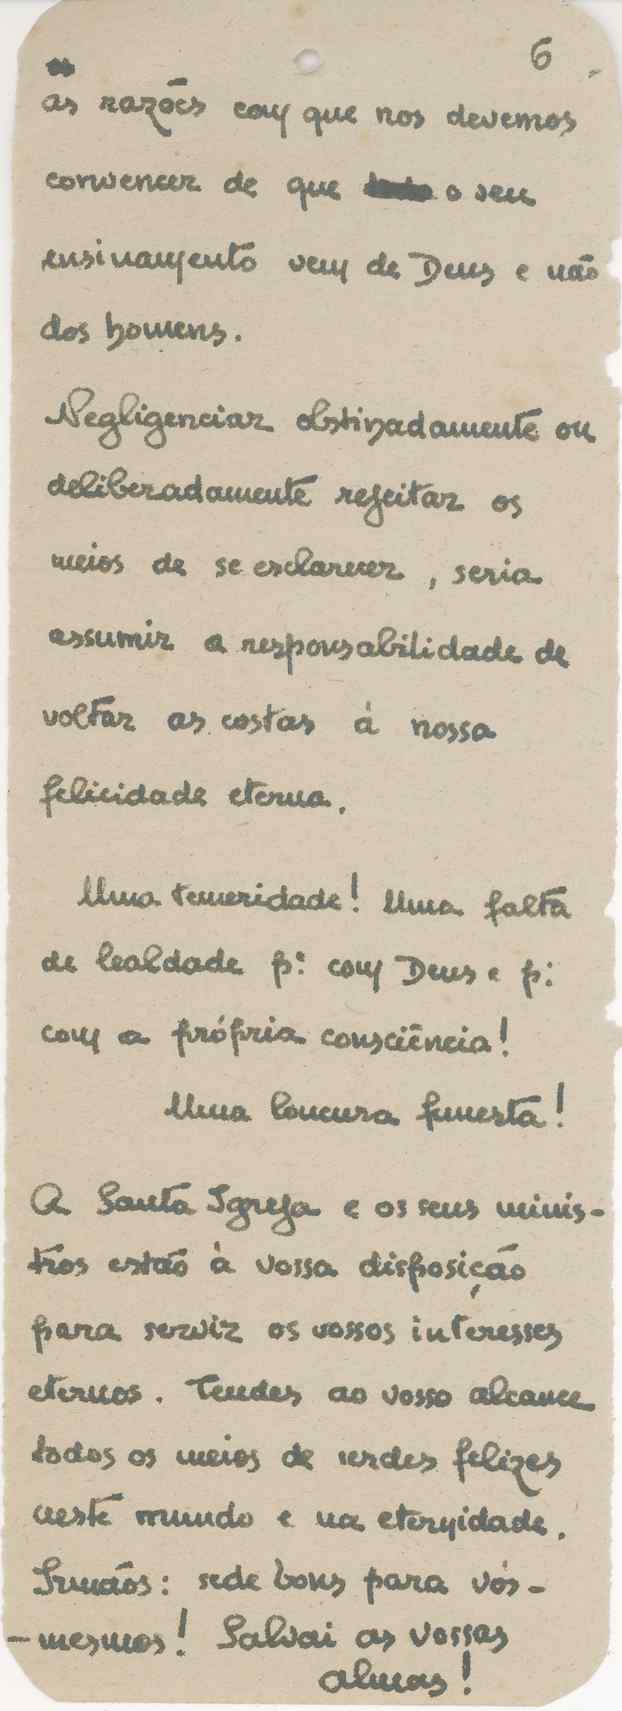 6
as razões com que nos devemos
convencer de que o seu
ensinamento vem de Deus e não
dos homens.
Negligenciar obstinadamente ou
deliberadamente rejeitar os
meios de se esclarecer, seria
assumir a responsabilidade de
voltar as costas á nossa
felicidade eterna.
Uma temeridade! Uma falta
de lealdade p: com Deus e p:
com a própria consciência!
Uma loucura funesta!
A Santa Igreja e os seus minis-
tros estão à vossa disposição
para servir os vossos interesses
eternos. Tendes ao vosso alcance
todos os meios de serdes felizes
neste mundo e na eternidade.
Irmãos: sede bons para vós-
-mesmos! Salvai as vossas
almas!